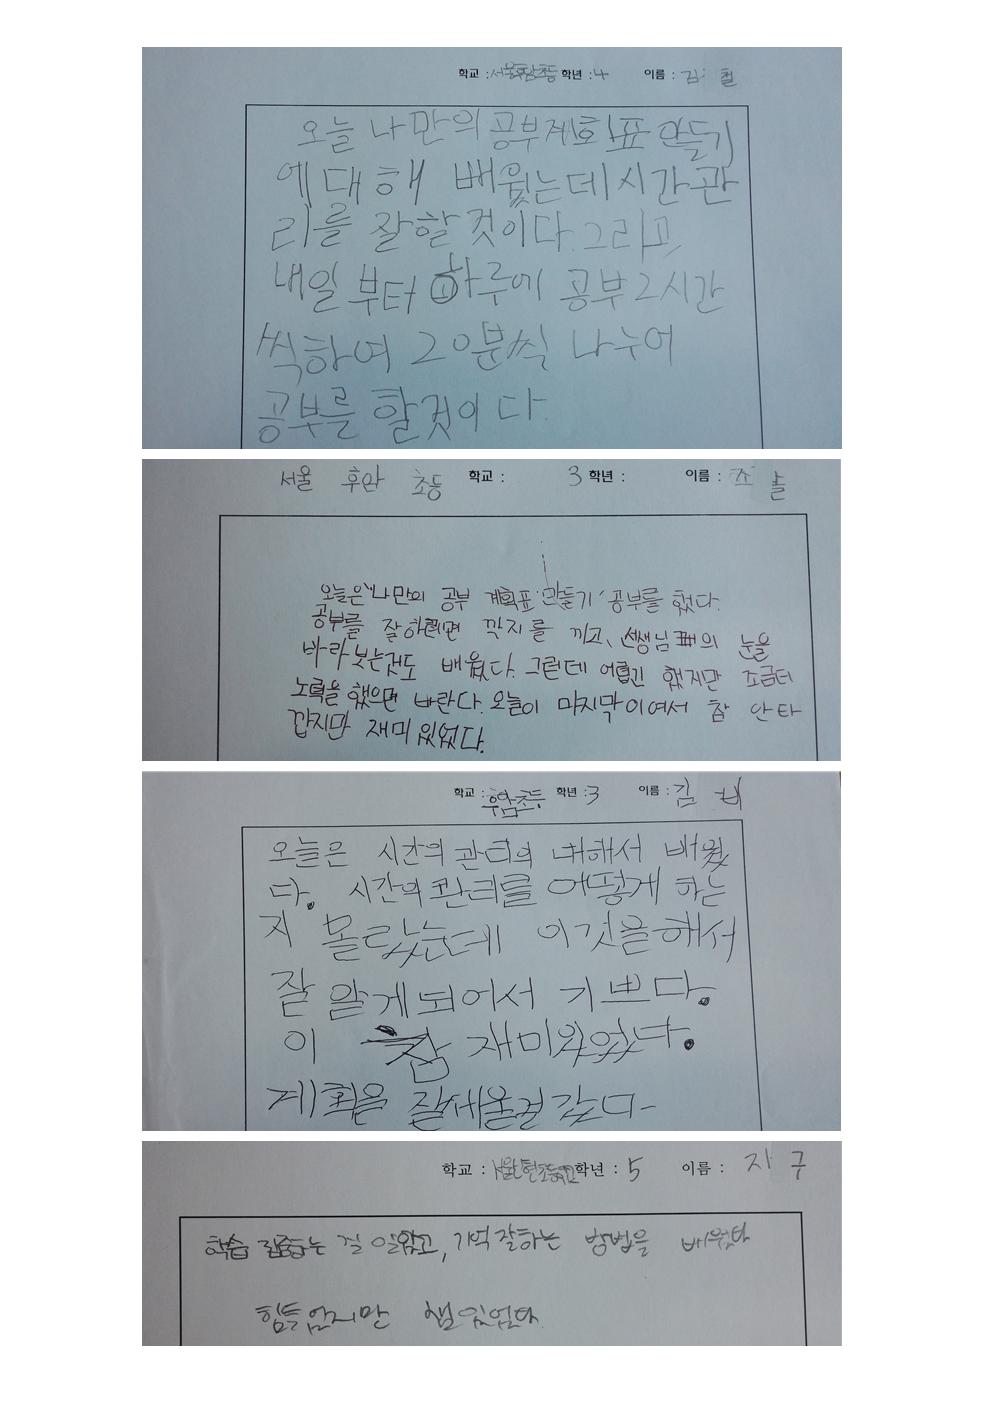 학교 : 서울후암초등 학년 : 4 이름 : 김 철
오늘 나만의 공부계획표 만들기
에대해 배웠는데 시간관
리를 잘할것이다. 그리고,
내일 부터 하루에 공부 2시간
씩하여 20분씩 나누어
공부를 할것이다.
서울 후암 초등 학교 : 3 학년 : 이름 : 조
오늘은 "나만의 공부 계획표 만들기" 공부를 했다.
공부를 잘하려면 깍지를 끼고, 선생님 의 눈을
바라봇는것도 배웠다. 그런데 어렵긴 했지만 조금더
노력을 했으면 바란다. 오늘이 마지막이여서 참 안타
깝지만 재미있었다.
학교 : 후암초등 학년 : 3 이름 : 김 비
오늘은 시간의 관리의 대해서 배웠
다. 시간의 관리를 어떻게 하는
지 몰랐는데 이것을해서
잘 알게되어서 기쁘다.
이 참 재미있었다.
계획을 잘세울걸 같다-
학교 : 학년 : 5 이름 : 지 구
학습 집중하는 걸 알았고, 기억잘하는 방법을 배웠다
힘들었지만 재밌었다.